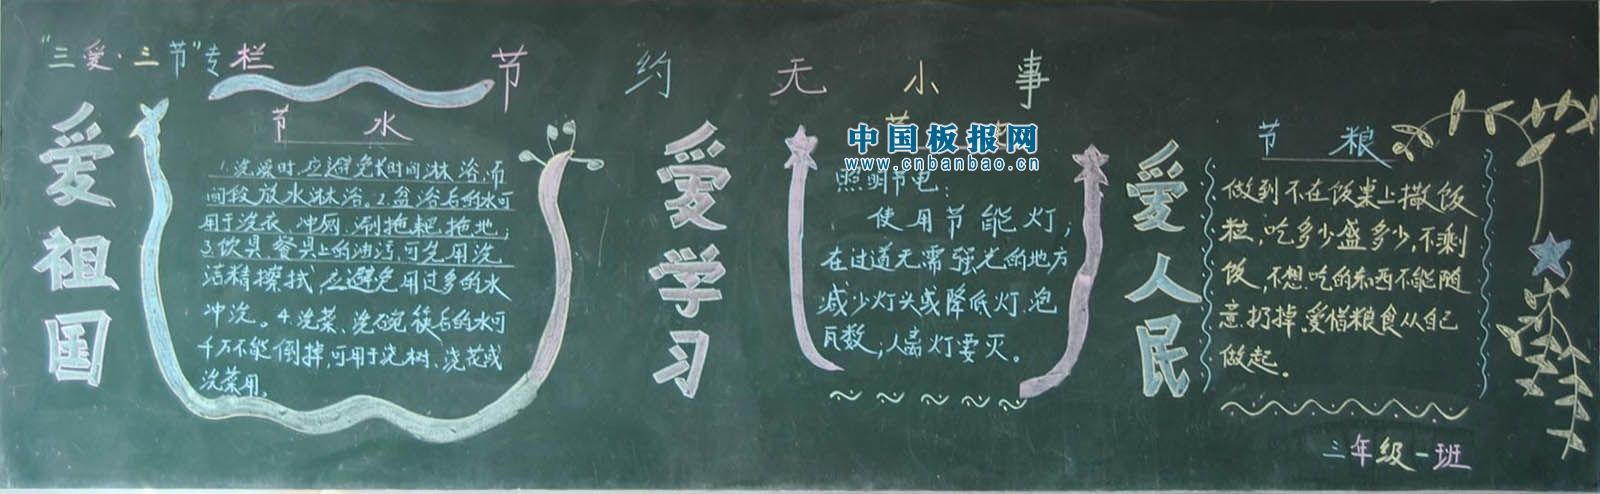 “三爱·三节”专栏
节约无小事
爱祖国
节水
1.洗澡时,应避免长时间淋浴,而
间段放水淋浴。2.盆浴后的水可
用于洗衣、冲厕、涮拖耙、拖地;
3.饮具、餐具上的油污,可先用洗
洁精擦拭,应避免用过多的水
冲洗。4.洗菜、洗碗筷后的水可
千万不能倒掉,可用于浇树、浇花或
浇菜用。
爱学习
节
中国板报网
www.cnbanbao.cn
照明节电:
使用节能灯;
在过道无需强光的地方
减少灯头或降低灯泡
瓦数;人离灯要灭。
爱人民
节粮
做到不在饭桌上撒饭
粒,吃多少盛多少,不剩
饭,不想吃的东西不能随
意扔掉,爱惜粮食从自己
做起.
三年级一班